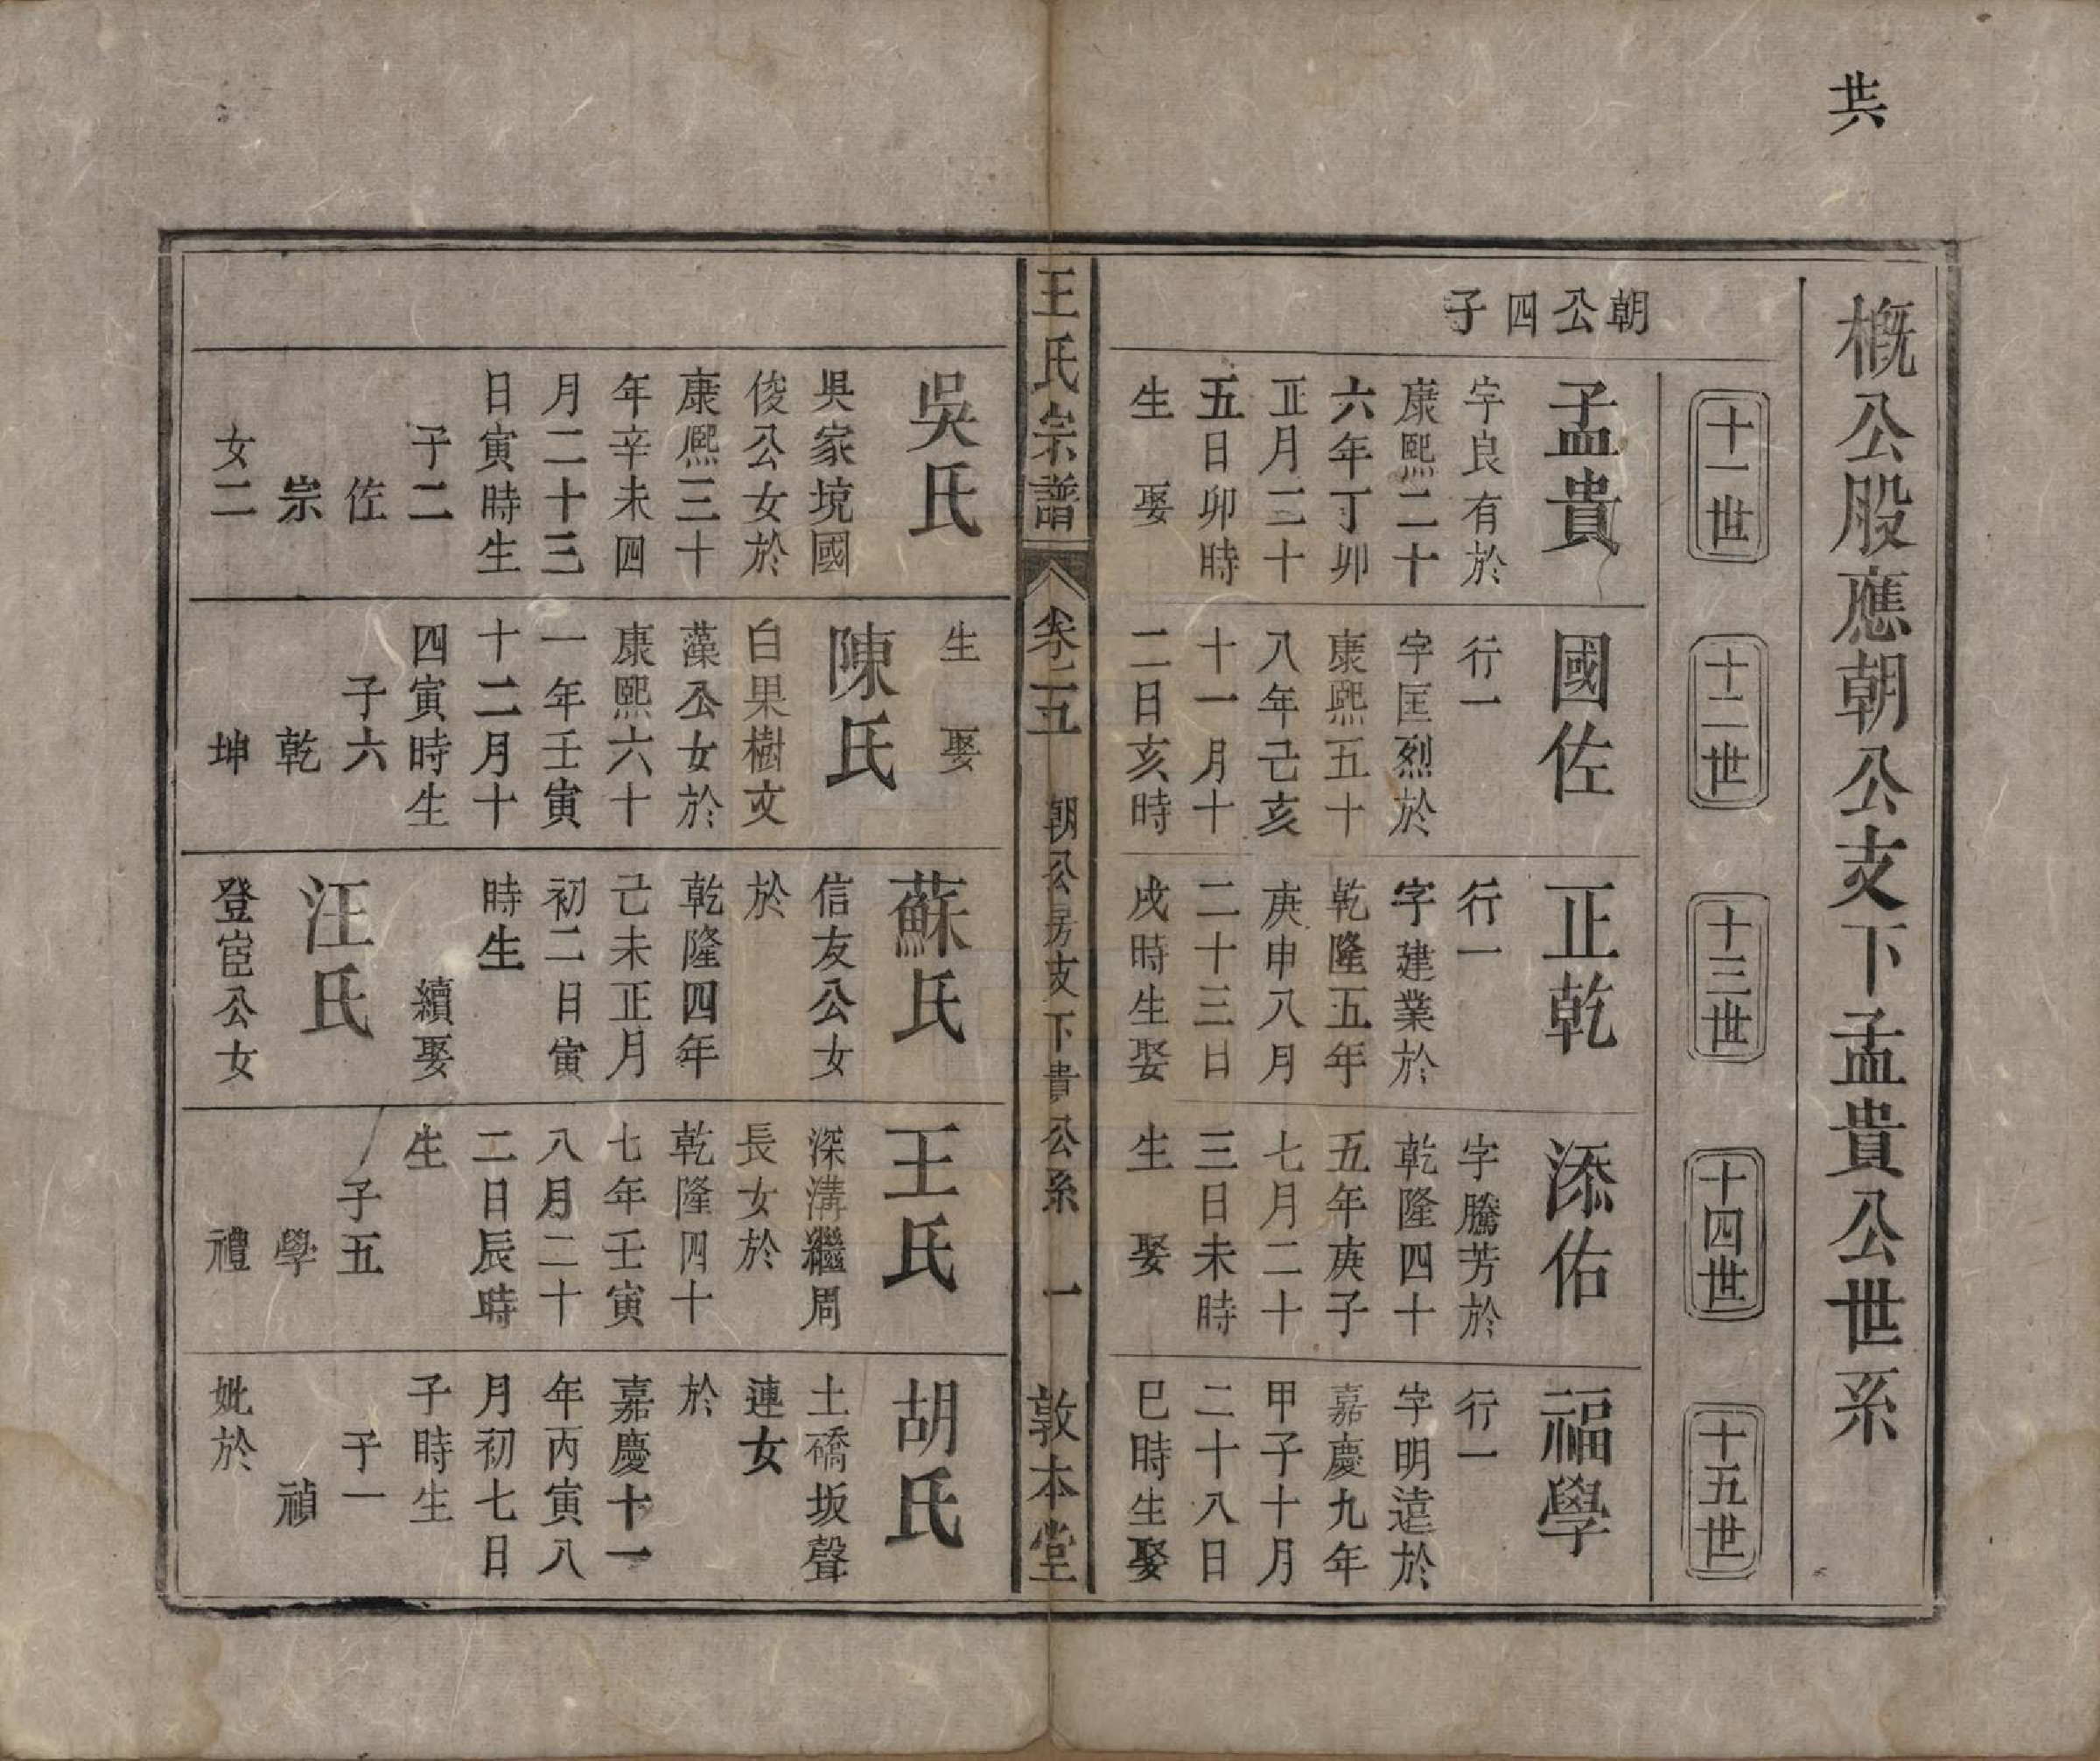 共
概公股應朝公支下孟貴公世系
十一世
十二世
十三世
十四世
十五世
朝公四子
孟貴
字良有於
康熙二十
六年丁卯
正月二十
五日卯時
生　娶
國佐
行一
字匡烈於
康熙五十
八年己亥
十一月十
二日亥時
正乾
行一
字建業於
乾隆五年
庚申八月
二十三日
戌時生娶
添佑
字騰芳於
乾隆四十
五年庚子
七月二十
三日未時
生　娶
福學
行一
字明遠於
嘉慶九年
甲子十月
二十八日
巳時生娶
王氏宗譜
卷之五
朝公房支下貴公系　一
敦本堂
吳氏
吳家境國
俊公女於
康熙三十
年辛未四
月二十三
日寅時生
子二
佐
崇
女二
生　娶
陳氏
白果樹文
藻公女於
康熙六十
一年壬寅
十二月十
四寅時生
子六
乾
坤
蘇氏
信友公女
於
乾隆四年
己未正月
初二日寅
時生
續娶
汪氏
登宦公女
王氏
深溝繼周
長女於
乾隆四十
七年壬寅
八月二十
二日辰時
生
子五
學
禮
胡氏
土礄坂聲
連女
於
嘉慶十一
年丙寅八
月初七日
子時生
子一
禎
妣於